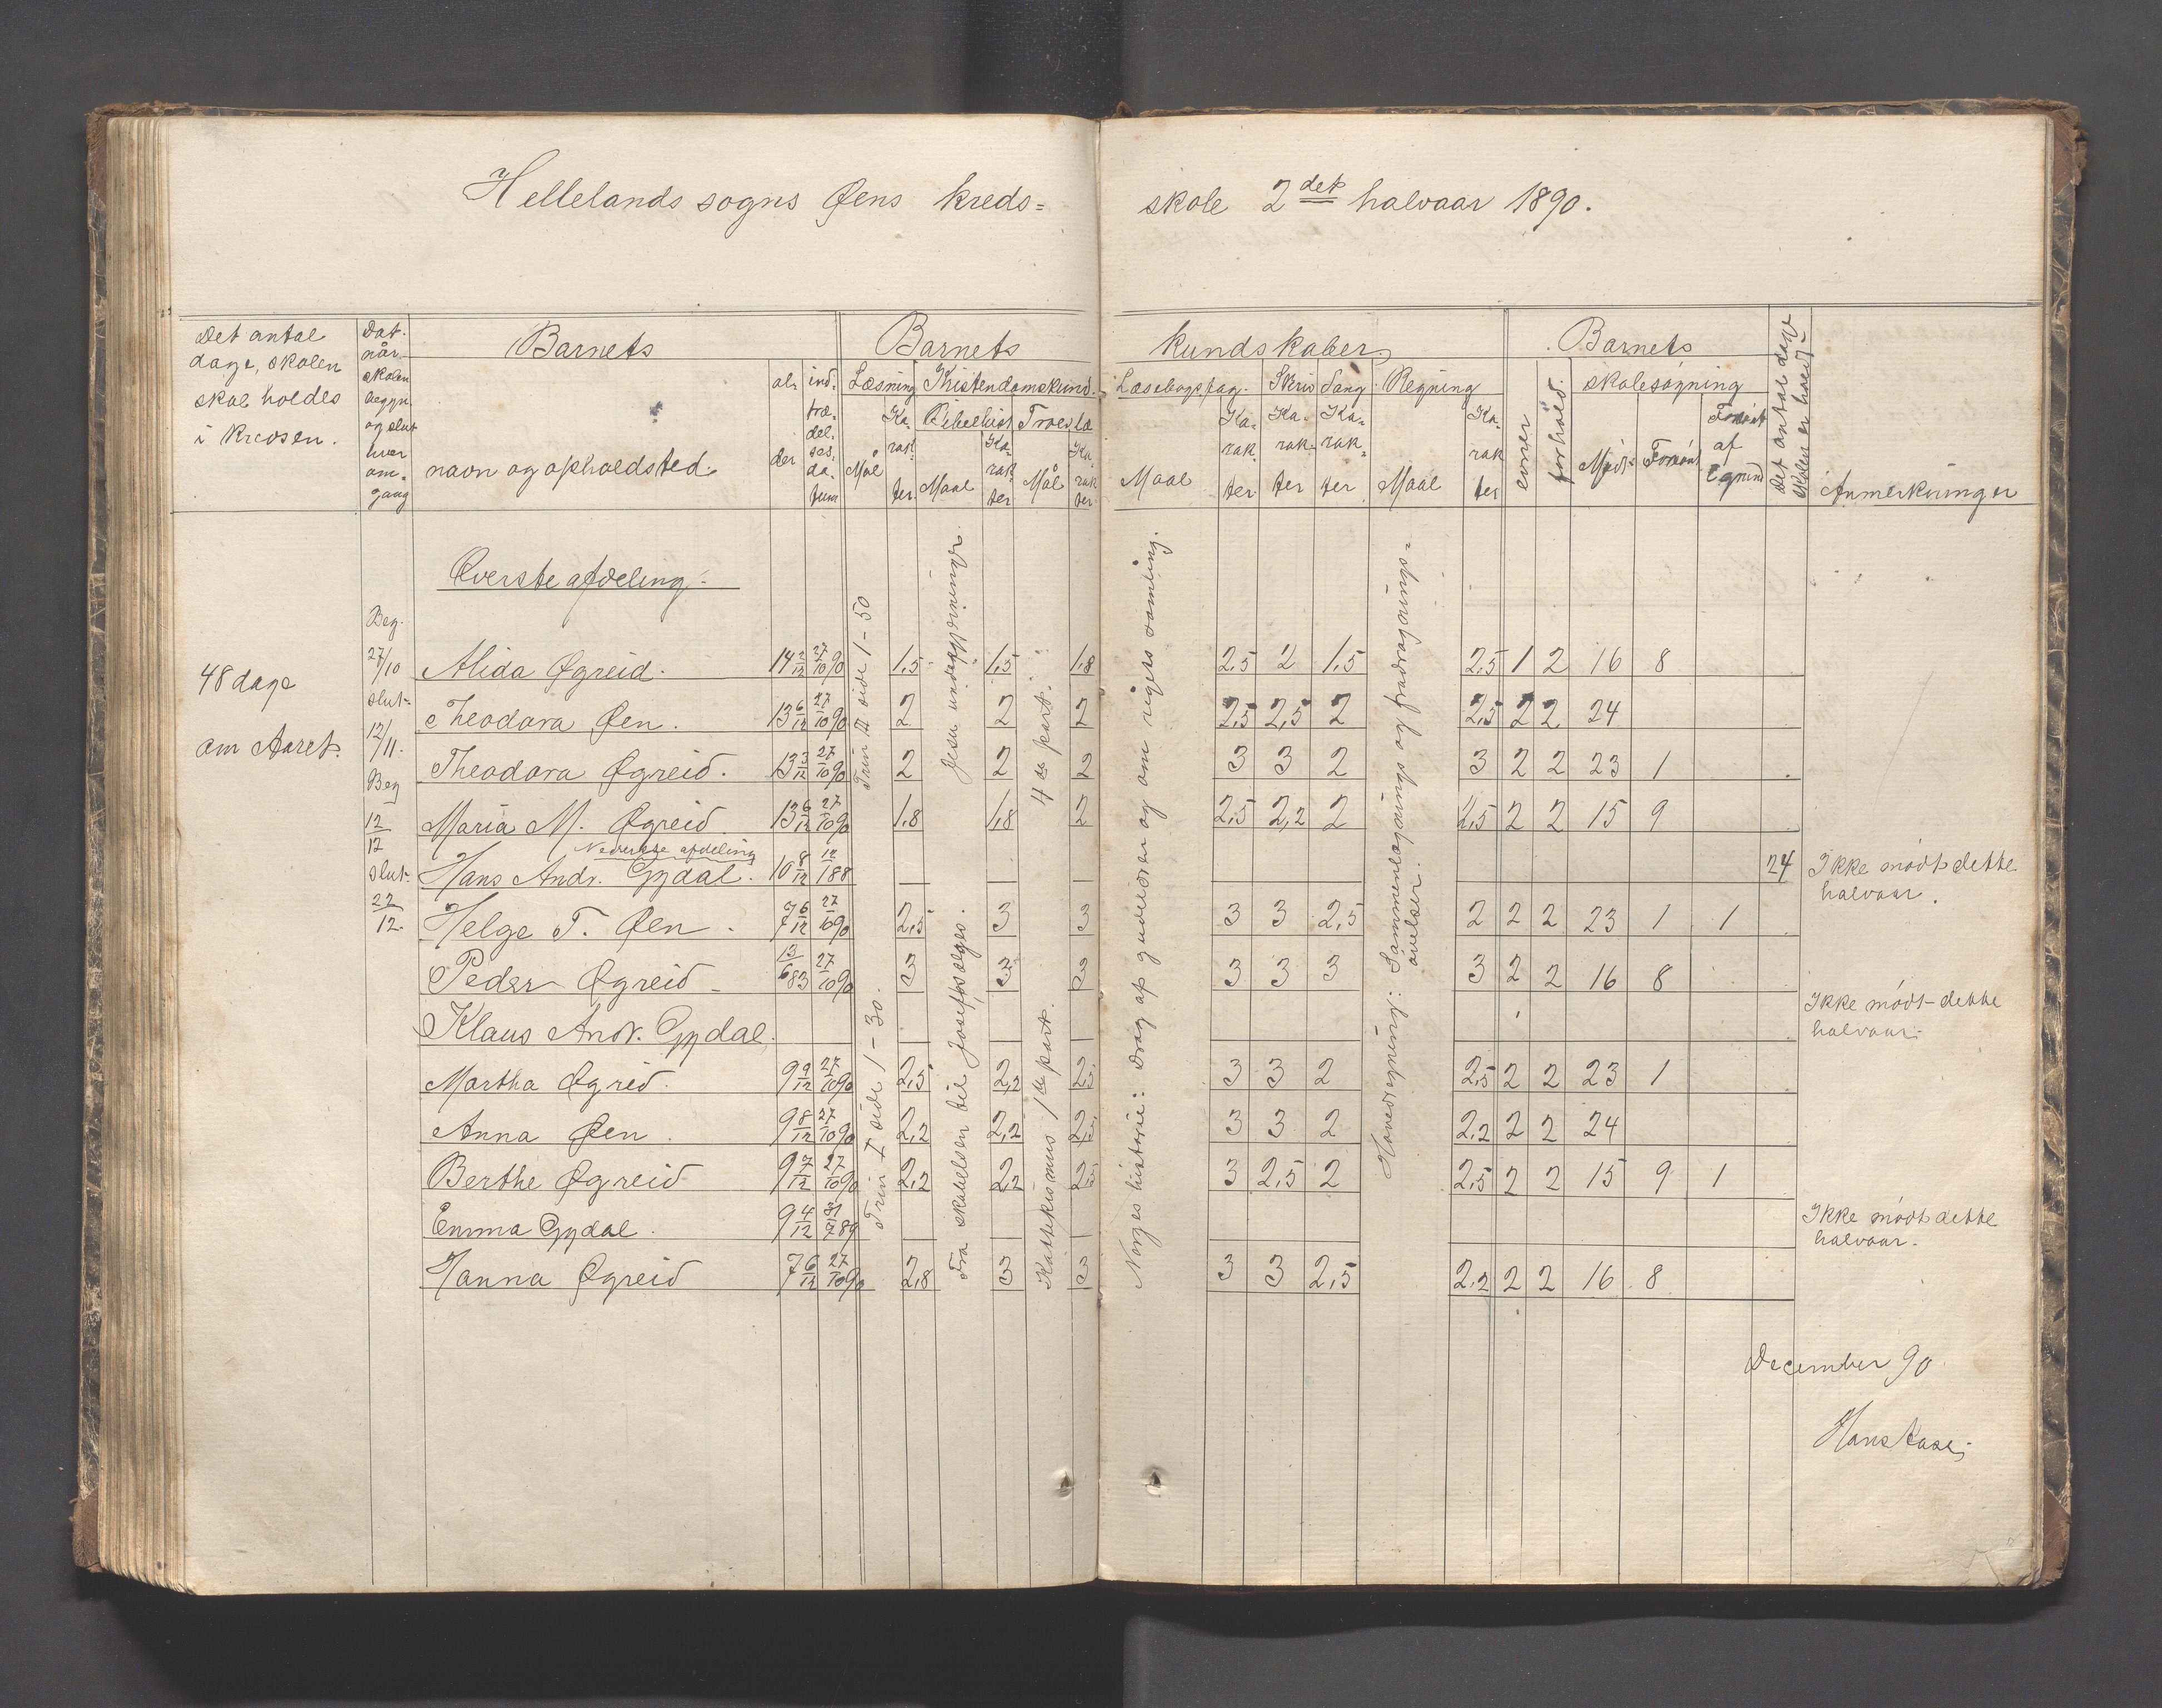 Hellelands sogns Øens kreds=
skole 2det halvaar 1890.
Det antal dage, skolen skal holdes i kredsen.
Dat. når skolen begyn. og slut hver om= gang
Barnets
navn og opholdsted.
al= der
ind. træ. del. ses. da. tum
Barnets
kundskaber.
Læsning
Mål
Ka. rak ter
Kristendomskund.
Bibelhist
Maal
Ka. rak ter
Troeslæ
Mål
Ka. rak ter
Læsebogsfag.
Maal
Ka. rak. ter
Skriv
Ka. rak. ter
Sang
Ka. rak. ter
Regning
Maal
Ka. rak ter
evner
forhold.
Barnets
skolesøgning
Mødt
Forsømt
Forsømt af Cgrund
Det antal dage skolen er holdt
Anmerkninger
48 dage
om Aaret.
Beg.
27/10
slut.
12/11.
Beg
12/12
slut.
22/12.
Øverste afdeling.
Alida Øgreid. 14 2/12 27/10 90 1,5 1,5 1,8 2,5 2 1,5 2,5 1 2 16 8
Theodora Øen. 13 6/12 27/10 90 2 2 2 2,5 2,5 2 2,5 2 2 24
Theodora Øgreid. 13 3/12 27/10 90 2 2 2 3 3 2 3 2 2 23 1
Maria M. Øgreid. 13 6/12 27/10 90 1,8 1,8 2 2,5 2,2 2 2,5 2 2 15 9
Nederste afdeling
Hans Andr. Gydal. 10 8/12 12/1 88 24 Ikke mødt dette halvaar.
Helge T. Øen. 7 6/12 27/10 90 2,5 3 3 3 3 2,5 2 2 2 23 1 1
Peder Øgreid 13/6 83 27/10 90 3 3 3 3 3 3 3 2 2 16 8
Klaus Andr. Gydal. Ikke mødt dette halvaar.
Martha Øgreid. 9 9/12 27/10 90 2,5 2,2 2,5 3 3 2 2,5 2 2 23 1
Anna Øen. 9 8/12 27/10 90 2,2 2,2 2,5 3 3 2 2,2 2 2 24
Berthe Øgreid 9 7/12 27/10 90 2,2 2,2 2,5 3 2,5 2 2,5 2 2 15 9 1
Emma Gydal. 9 4/12 31/7 89 Ikke mødt dette halvaar.
Hanna Øgreid 7 6/12 27/10 90 2,8 3 3 3 3 2,5 2,2 2 2 16 8
Trin II side 1-50
Trin I side 1-30.
Jesu undergjerninger.
Fra skabelsen til Josef sælges.
4de part.
Katekismus 1ste part.
Norges historie: Drag af gudelæren og om rigets samling.
Hovedregning: Sammenlægnings og fradragnings= øvelser.
December 90